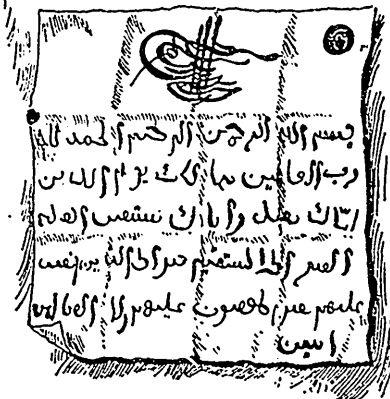 بسم الله الرحمن الرحيم الحمد لله
رب العالمين مالك يوم الدين
اياك نعبد واياك نستعين
المستقيم صراط الذين
عليهم غير عليهم ولا الضالين
امين